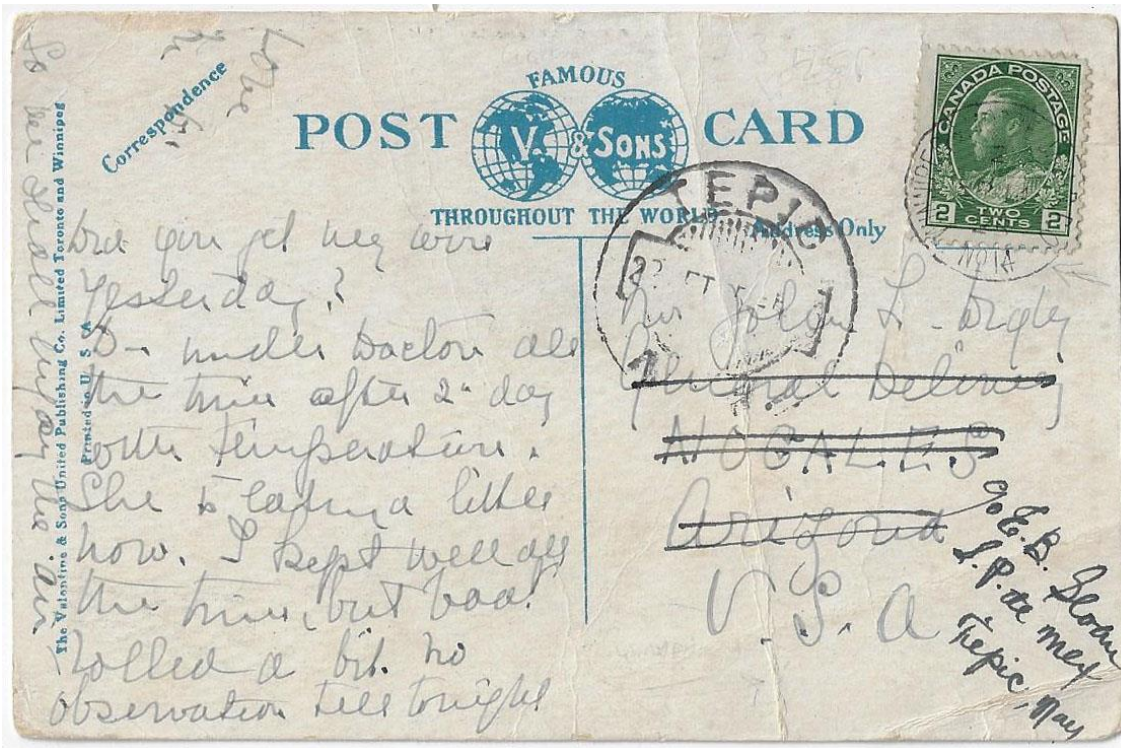 FAMOUS
POST CARD
V. & SONS
THROUGHOUT THE WORLD
Correspondence
Address Only
The Valentine & Sons United Publishing Co. Limited Toronto and Winnipeg
Printed in U.S.A
CANADA POSTAGE
2 TWO CENTS 2
No 14
TEPIC
Love
Did you get my wire
Yesterday?
D– under Doctor all
the time after 2ⁿ day
with temperature.
She is eating a little
now. I kept well all
the time, but boat
rolled a bit. No
observation till tonight
So we shall enjoy the air
Mr John L.
General Delivery
NOGALES
Arizona
U.S.A
c/o E. B. Sloan
S.P. de Mex
Tepic, Nay